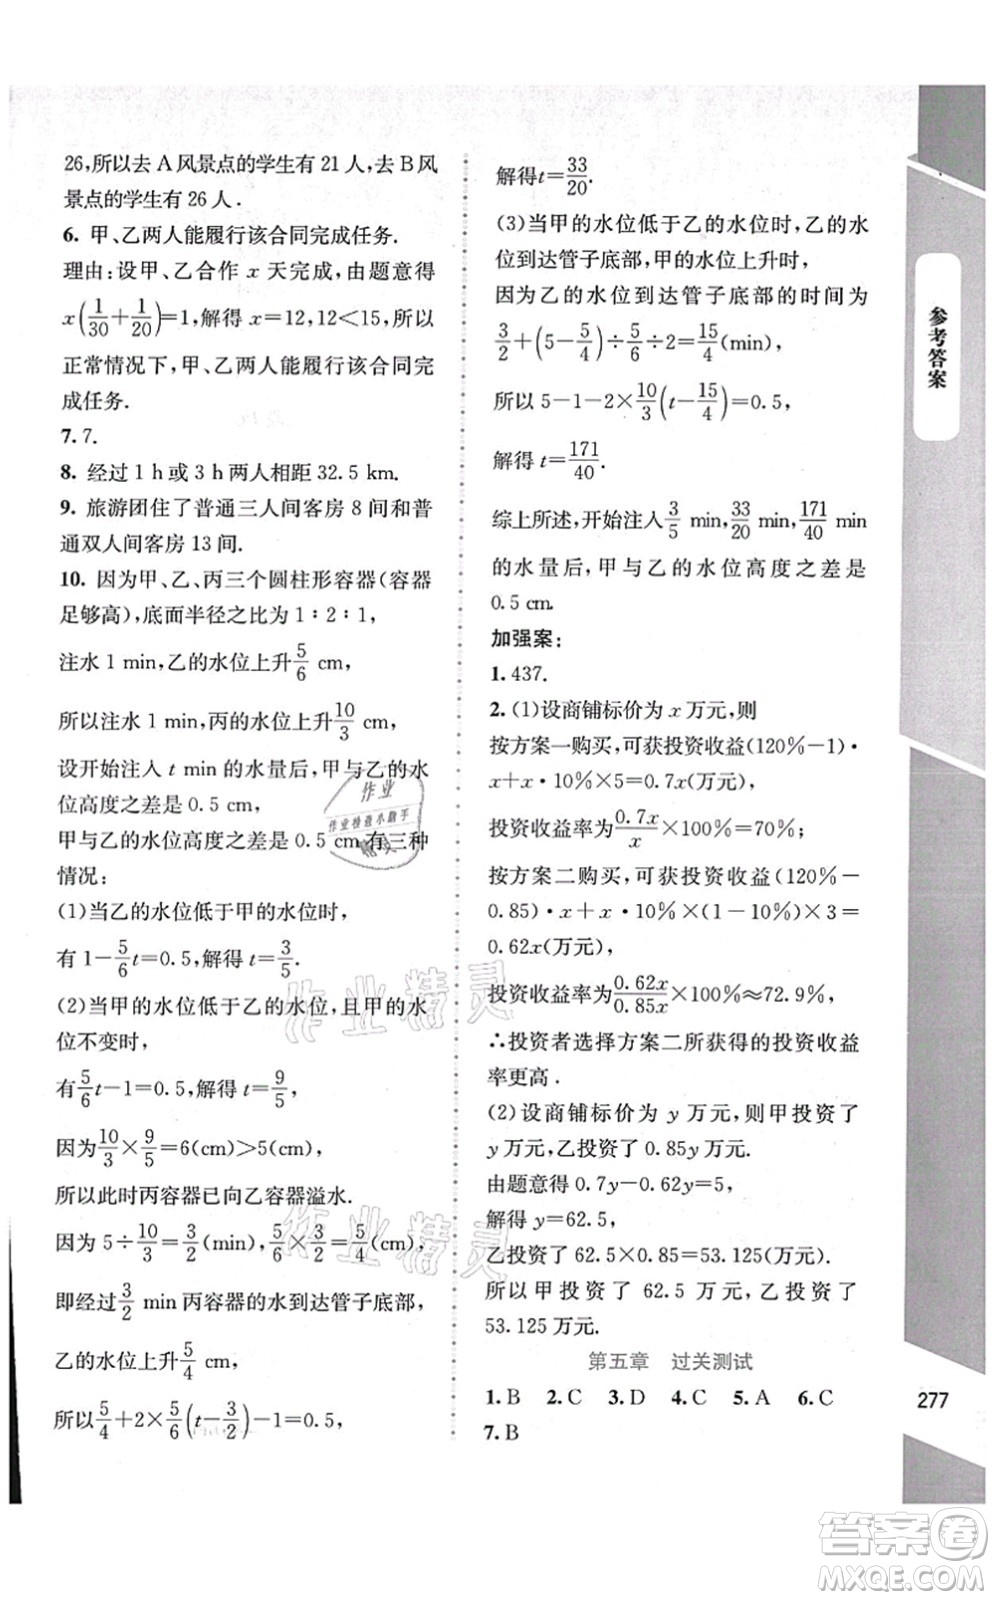 26,所以去 A 风景点的学生有 21 人,去 B 风
景点的学生有 26 人.
6. 甲、乙两人能履行该合同完成任务.
理由:设甲、乙合作 x 天完成,由题意得
x(1/30+1/20)=1,解得 x=12,12<15,所以
正常情况下,甲、乙两人能履行该合同完
成任务.
7. 7.
8. 经过 1 h 或 3 h 两人相距 32.5 km.
9. 旅游团住了普通三人间客房 8 间和普
通双人间客房 13 间.
10. 因为甲、乙、丙三个圆柱形容器(容器
足够高),底面半径之比为 1∶2∶1,
注水 1 min,乙的水位上升 5/6 cm,
所以注水 1 min,丙的水位上升 10/3 cm,
设开始注入 t min 的水量后,甲与乙的水
位高度之差是 0.5 cm,
甲与乙的水位高度之差是 0.5 cm 有三种
情况:
(1)当乙的水位低于甲的水位时,
有 1-5/6t=0.5,解得 t=3/5.
(2)当甲的水位低于乙的水位,且甲的水
位不变时,
有 5/6t-1=0.5,解得 t=9/5,
因为 10/3×9/5=6(cm)>5(cm),
所以此时丙容器已向乙容器溢水.
因为 5÷10/3=3/2(min),5/6×3/2=5/4(cm),
即经过 3/2 min 丙容器的水到达管子底部,
乙的水位上升 5/4 cm,
所以 5/4+2×5/6(t-3/2)-1=0.5,
解得 t=33/20.
(3)当甲的水位低于乙的水位时,乙的水
位到达管子底部,甲的水位上升时,
因为乙的水位到达管子底部的时间为
3/2+(5-5/4)÷5/6÷2=15/4(min),
所以 5-1-2×10/3(t-15/4)=0.5,
解得 t=171/40.
综上所述,开始注入 3/5 min,33/20 min,171/40 min
的水量后,甲与乙的水位高度之差是
0.5 cm.
加强案:
1. 437.
2. (1)设商铺标价为 x 万元,则
按方案一购买,可获投资收益(120%-1)·
x+x·10%×5=0.7x(万元),
投资收益率为 0.7x/x×100%=70%;
按方案二购买,可获投资收益(120%-
0.85)·x+x·10%×(1-10%)×3=
0.62x(万元),
投资收益率为 0.62x/0.85x×100%≈72.9%,
∴投资者选择方案二所获得的投资收益
率更高.
(2)设商铺标价为 y 万元,则甲投资了
y 万元,乙投资了 0.85y 万元.
由题意得 0.7y-0.62y=5,
解得 y=62.5,
乙投资了 62.5×0.85=53.125(万元)
所以甲投资了 62.5 万元,乙投资了
53.125 万元.
第五章 过关测试
1. B 2. C 3. D 4. C 5. A 6. C
7. B
参考答案
277
作业
作业检查小助手
精灵
作业精灵
作业精灵
答案卷
MXQE.COM